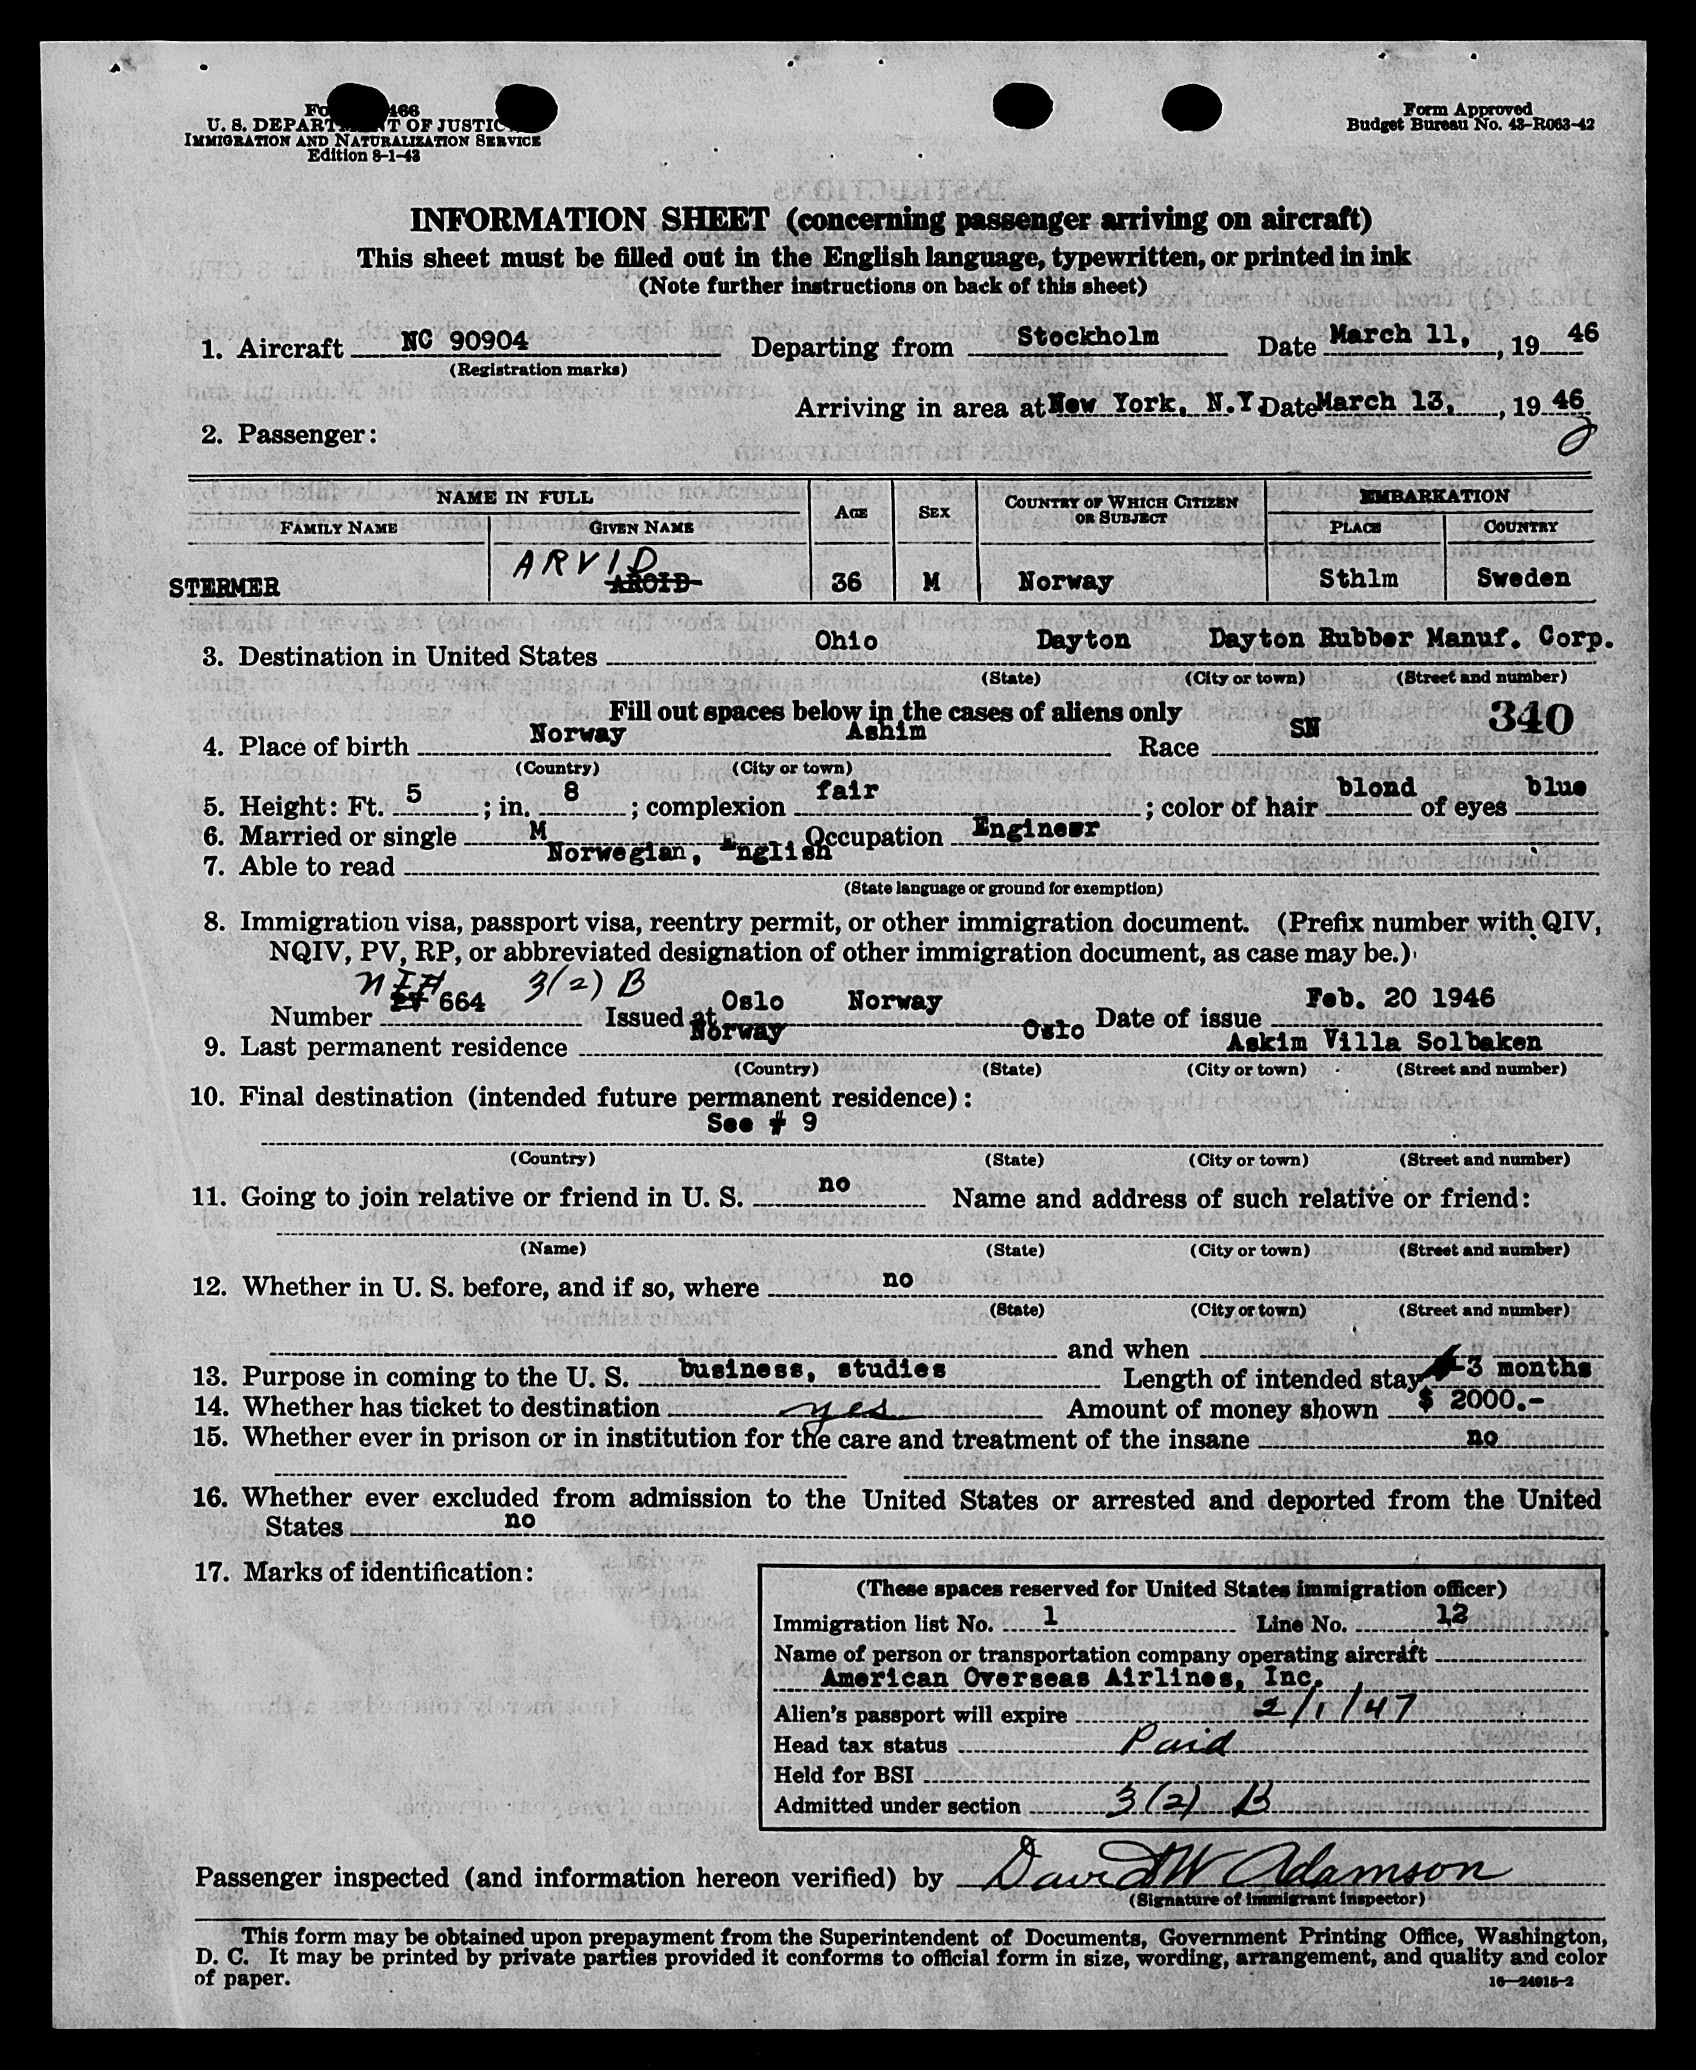 Form I-466
U. S. DEPARTMENT OF JUSTICE
IMMIGRATION AND NATURALIZATION SERVICE
Edition 8-1-43
Form Approved
Budget Bureau No. 43-R063-42
INFORMATION SHEET (concerning passenger arriving on aircraft)
This sheet must be filled out in the English language, typewritten, or printed in ink
(Note further instructions on back of this sheet)
1. Aircraft NC 90904 Departing from Stockholm Date March 11, , 19 46
(Registration marks)
Arriving in area at New York, N.Y. Date March 13, , 19 46
2. Passenger:
NAME IN FULL AGE SEX COUNTRY OF WHICH CITIZEN OR SUBJECT EMBARKATION
FAMILY NAME GIVEN NAME PLACE COUNTRY
ARVID
STERMER AROID 36 M Norway Sthlm Sweden
3. Destination in United States Ohio Dayton Dayton Rubber Manuf. Corp.
(State) (City or town) (Street and number)
Fill out spaces below in the cases of aliens only
340
4. Place of birth Norway Ashim Race SN
(Country) (City or town)
5. Height: Ft. 5 ; in. 8 ; complexion fair ; color of hair blond of eyes blue
6. Married or single M Occupation Engineer
7. Able to read Norwegian, English
(State language or ground for exemption)
8. Immigration visa, passport visa, reentry permit, or other immigration document. (Prefix number with QIV,
NQIV, PV, RP, or abbreviated designation of other immigration document, as case may be.)
Number PV 664 3(2) B Issued at Oslo Norway Date of issue Feb. 20 1946
9. Last permanent residence Norway Oslo Askim Villa Solbaken
(Country) (State) (City or town) (Street and number)
10. Final destination (intended future permanent residence):
See # 9
(Country) (State) (City or town) (Street and number)
11. Going to join relative or friend in U. S. no Name and address of such relative or friend:
(Name) (State) (City or town) (Street and number)
12. Whether in U. S. before, and if so, where no
(State) (City or town) (Street and number)
and when
13. Purpose in coming to the U. S. business, studies Length of intended stay 3 months
14. Whether has ticket to destination yes Amount of money shown $ 2000.-
15. Whether ever in prison or in institution for the care and treatment of the insane no
16. Whether ever excluded from admission to the United States or arrested and deported from the United
States no
17. Marks of identification:
(These spaces reserved for United States immigration officer)
Immigration list No. 1 Line No. 12
Name of person or transportation company operating aircraft
American Overseas Airlines, Inc.
Alien's passport will expire 2/1/47
Head tax status Paid
Held for BSI
Admitted under section 3(2) B
Passenger inspected (and information hereon verified) by David W Adamson
(Signature of immigrant inspector)
This form may be obtained upon prepayment from the Superintendent of Documents, Government Printing Office, Washington,
D. C. It may be printed by private parties provided it conforms to official form in size, wording, arrangement, and quality and color
of paper.
16—24915-2